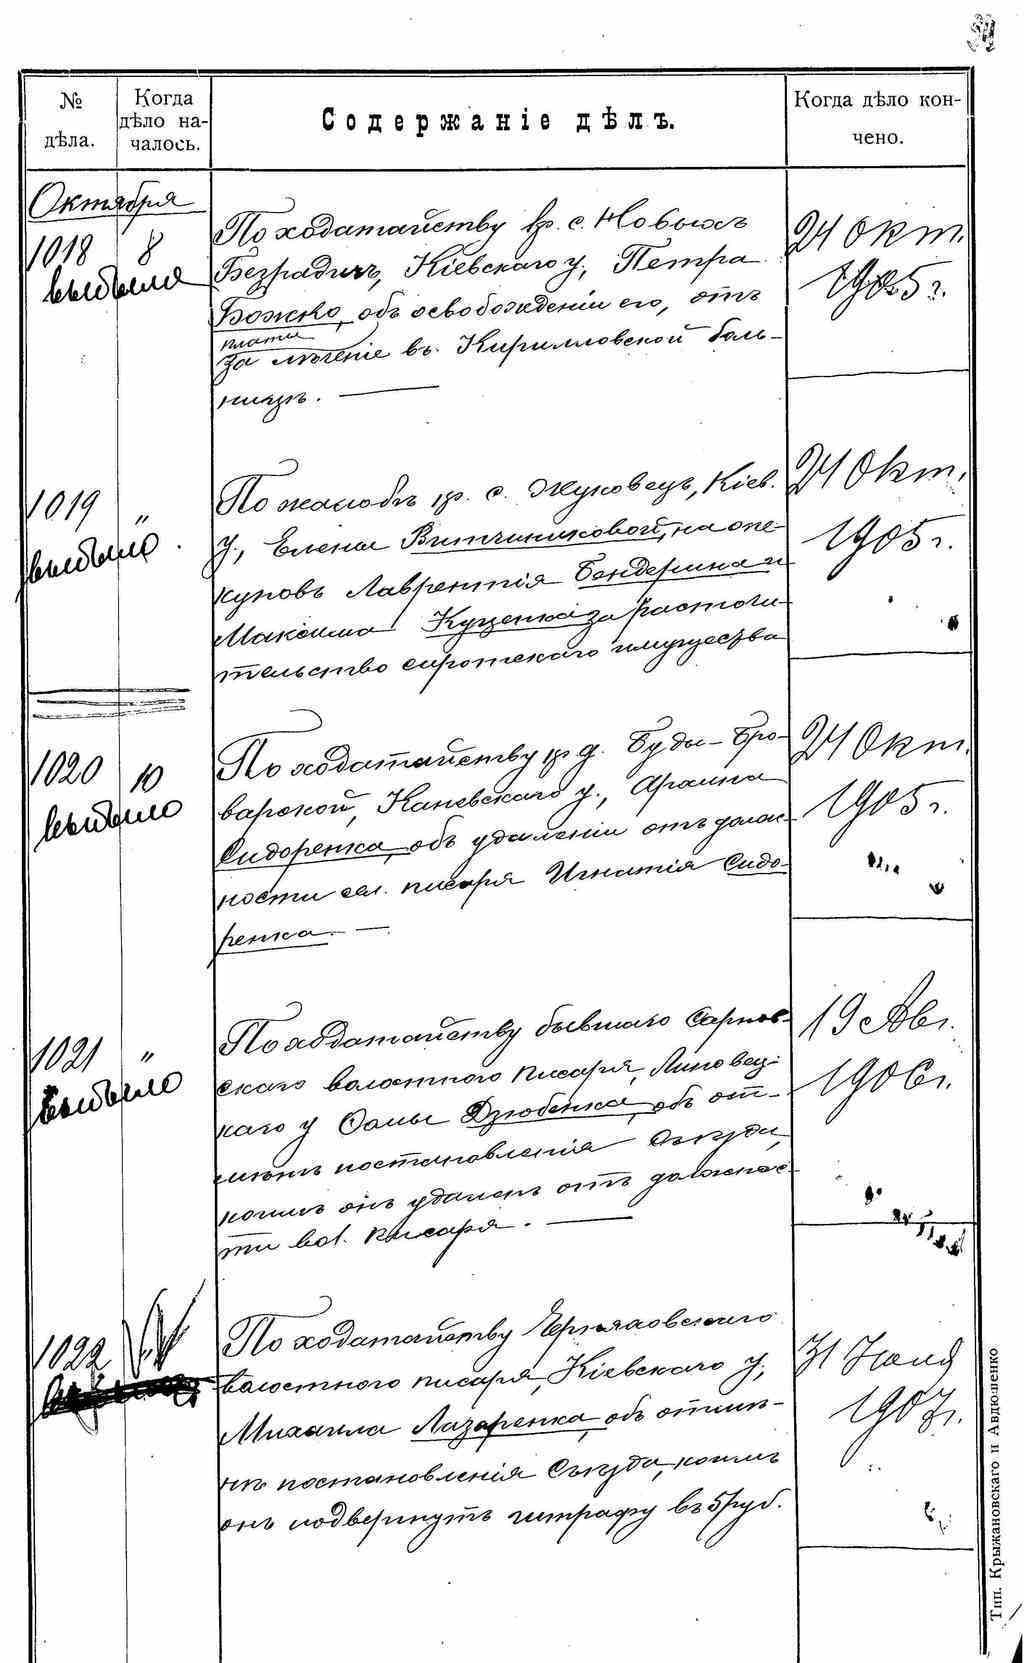 № дѣла.
Когда дѣло началось.
Содержаніе дѣлъ.
Когда дѣло кончено.
Октября
1018 8
выбыло
По ходатайству кр. с. Новыхъ
Безрадичъ, Кіевскаго у., Петра
Божко, объ освобожденіи его, отъ
платы
за лѣченіе въ Кирилловской боль-
ницѣ.
24 Окт.
1905 г.
1019 "
выбыло
По жалобѣ кр. с. Жуковецъ, Кіев.
у., Елены на опе-
куновъ Лаврентія и
Максима Куценка за расточи-
тельство сиротскаго имущества
24 Окт.
1905 г.
1020 10
выбыло
По ходатайству кр. д. Буды-Бро-
варской, Каневскаго у.,
Сидоренка, объ удаленіи отъ долж-
ности сел. писаря Игнатія Сидо-
ренка.
24 Окт.
1905 г.
1021 "
выбыло
По ходатайству бывшаго
скаго волостного писаря, Липовец-
каго у Фомы Дзюбенка, объ от-
мѣнѣ постановленія Съѣзда,
коимъ онъ удаленъ отъ должнос-
ти вол. писаря.
19 Авг.
1906 г.
1022
По ходатайству Черняховскаго
волостного писаря, Кіевскаго у.,
Михаила Лазаренка, объ отмѣ-
нѣ постановленія Съѣзда, коимъ
онъ подвергнутъ штрафу въ 5 руб.
31 Іюля
1907 г.
Тип. Крыжановскаго и Авдюшенко